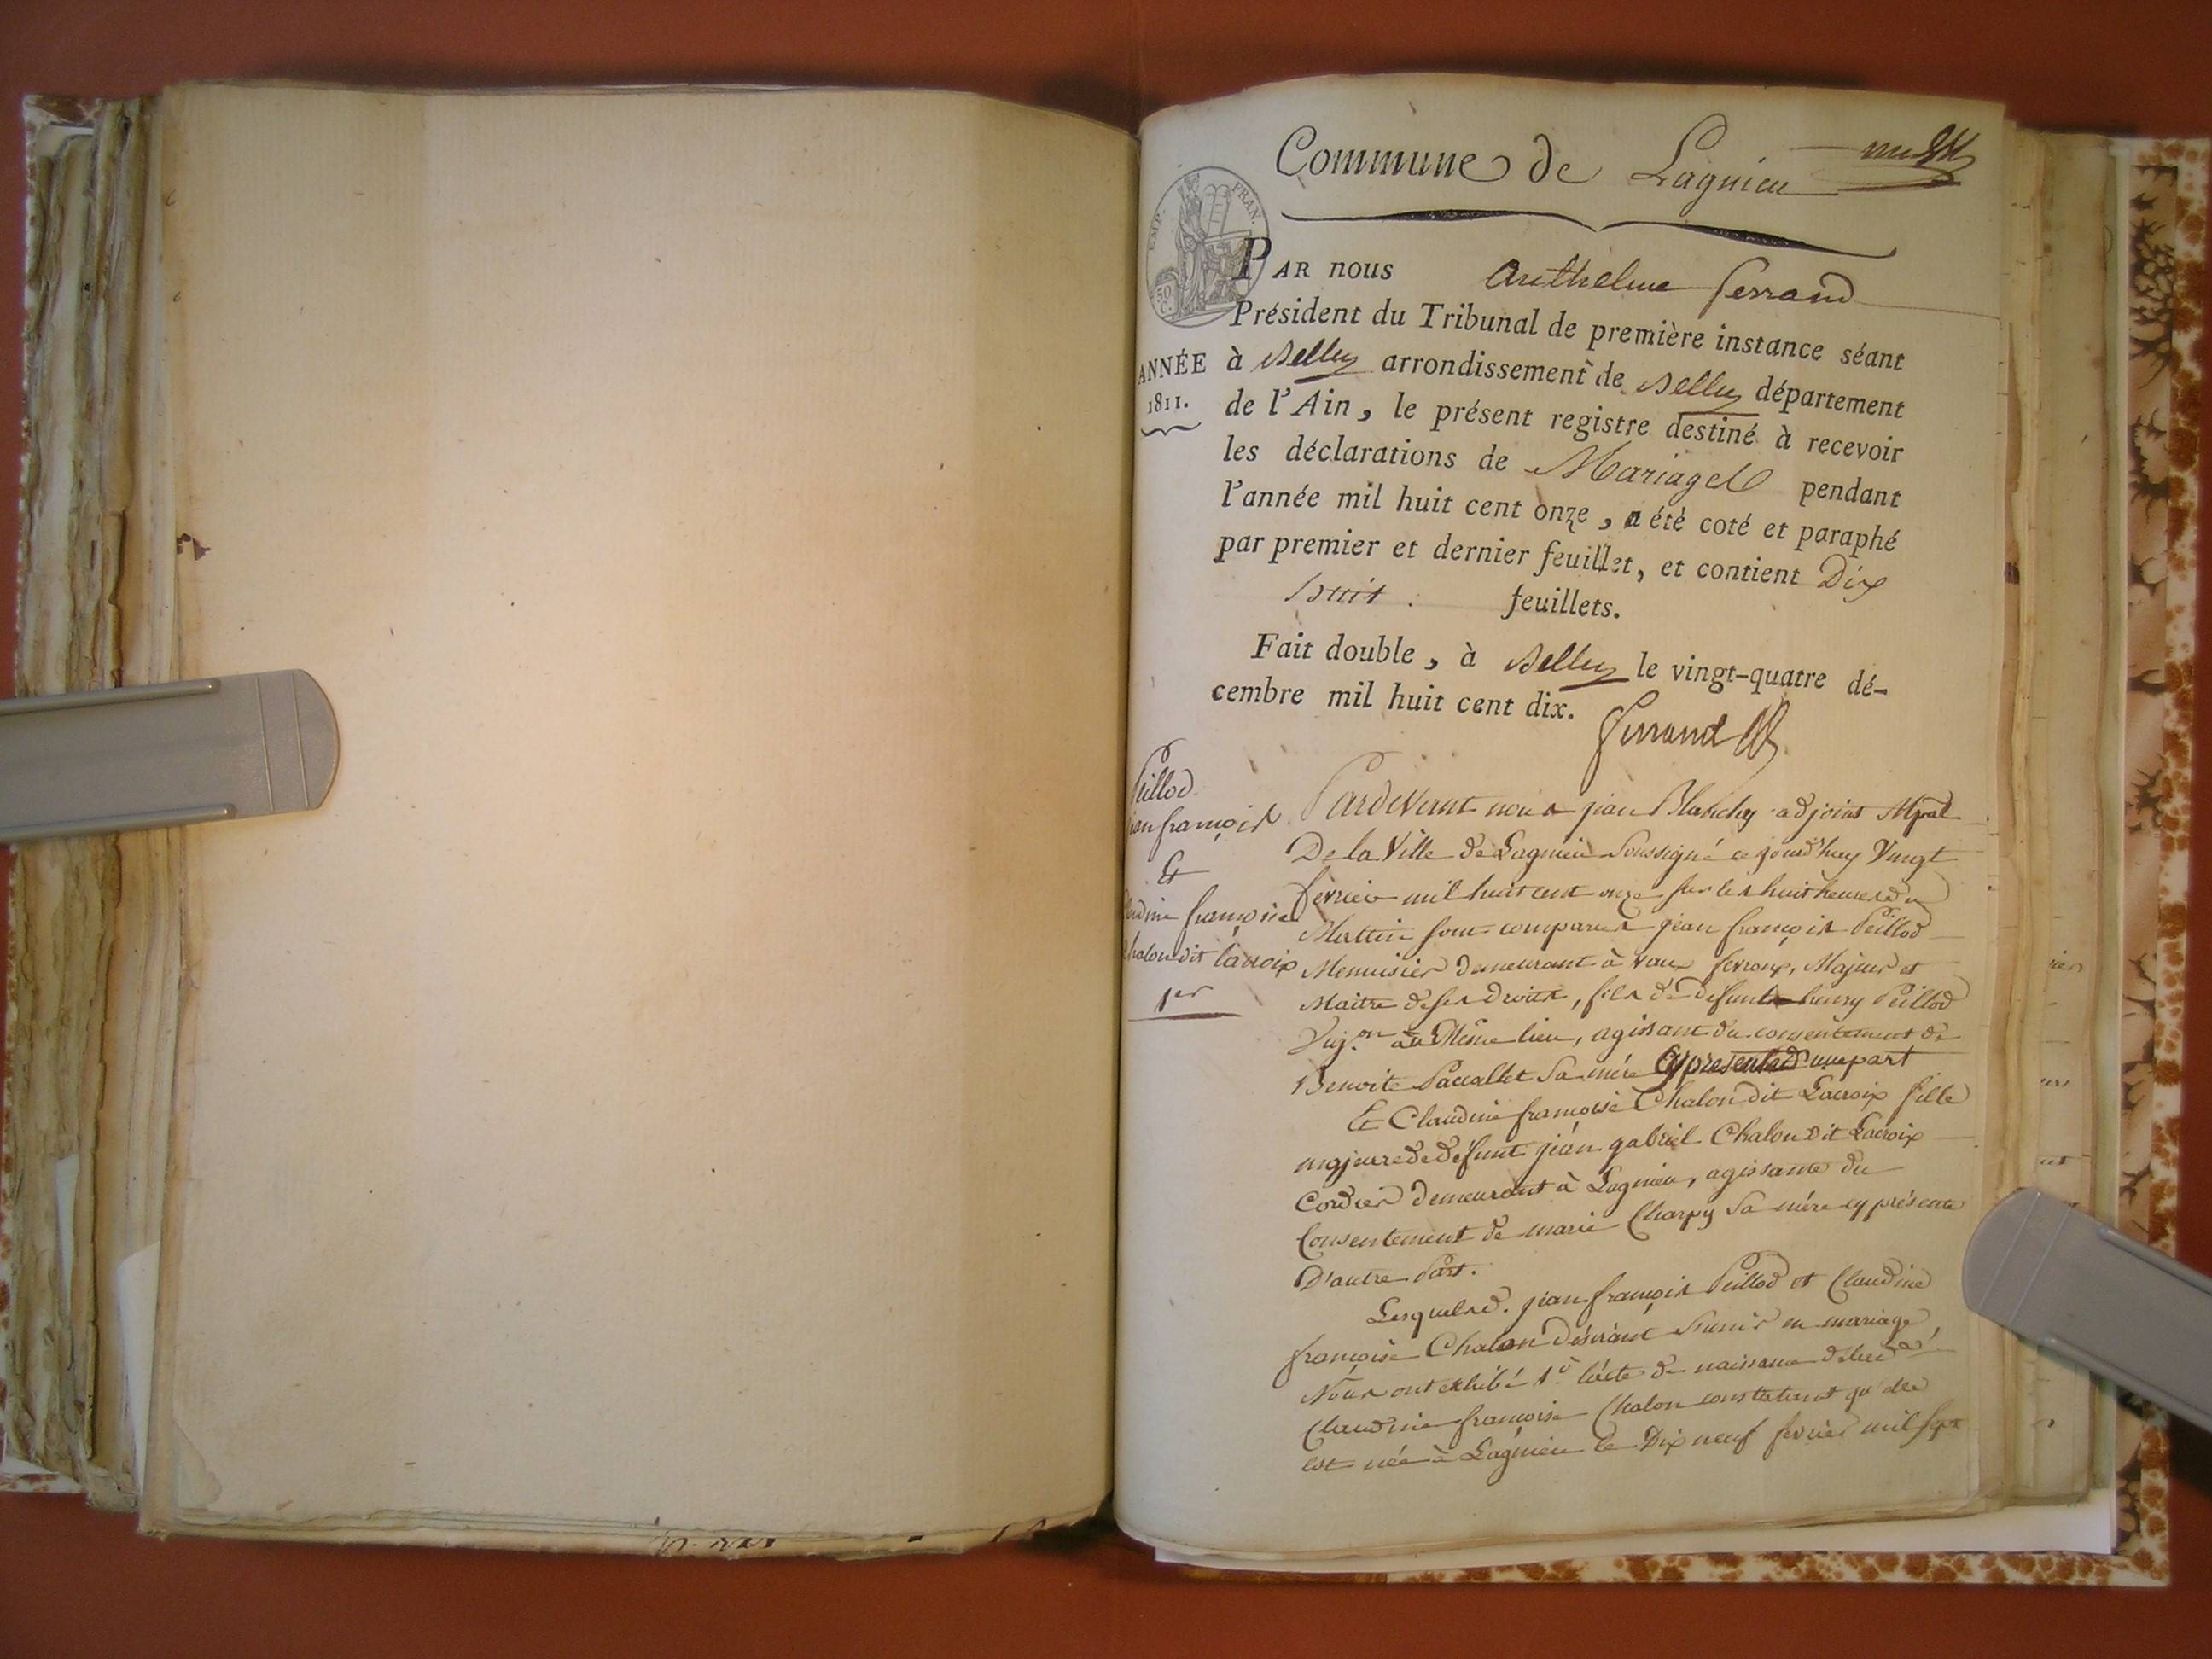 Commune de Lagnieu
EMP. FRAN.
50 C.
PAR nous Anthelme ferrand
Président du Tribunal de première instance séant
ANNÉE
1811.
à Belley arrondissement de Belley département
de l'Ain, le présent registre destiné à recevoir
les déclarations de Mariages pendant
l'année mil huit cent onze, a été coté et paraphé
par premier et dernier feuillet, et contient Dix
huit. feuillets.
Fait double, à Belley le vingt-quatre dé-
cembre mil huit cent dix.
ferrand
Peillod
jean françois
Et
Claudine françoise
Chalon dit lacroix
1er
Pardevant nous jean Blanchy adjoint Mpal
De la Ville de Lagnieu Soussigné ce jourd'huy Vingt
fevrier mil huit cent onze sur les huit heures du
Mattin sont comparus jean françois Peillod
Menuisier demeurant à vaux fevroux, Majeur et
Maitre de ses droits, fils de defunt henry Peillod
Vig.on au Même lieu, agissant du consentement de
Benoite Paccallet Sa mére cy presente d'une part
Et Claudine françoise Chalon dit Lacroix fille
majeure de defunt jean gabriel Chalon dit Lacroix
Cordier demeurant à Lagnieu, agissante du
Consentement de marie Charpy Sa mére cy présente
D'autre Part.
Lesquels d. jean françois Peillod et Claudine
françoise Chalon désirant S'unir en mariage,
Nous ont exhibé 1º l'acte de naissance de lad.
Claudine françoise Chalon constatant qu'elle
est née à Lagnieu le Dix neuf fevrier mil sept